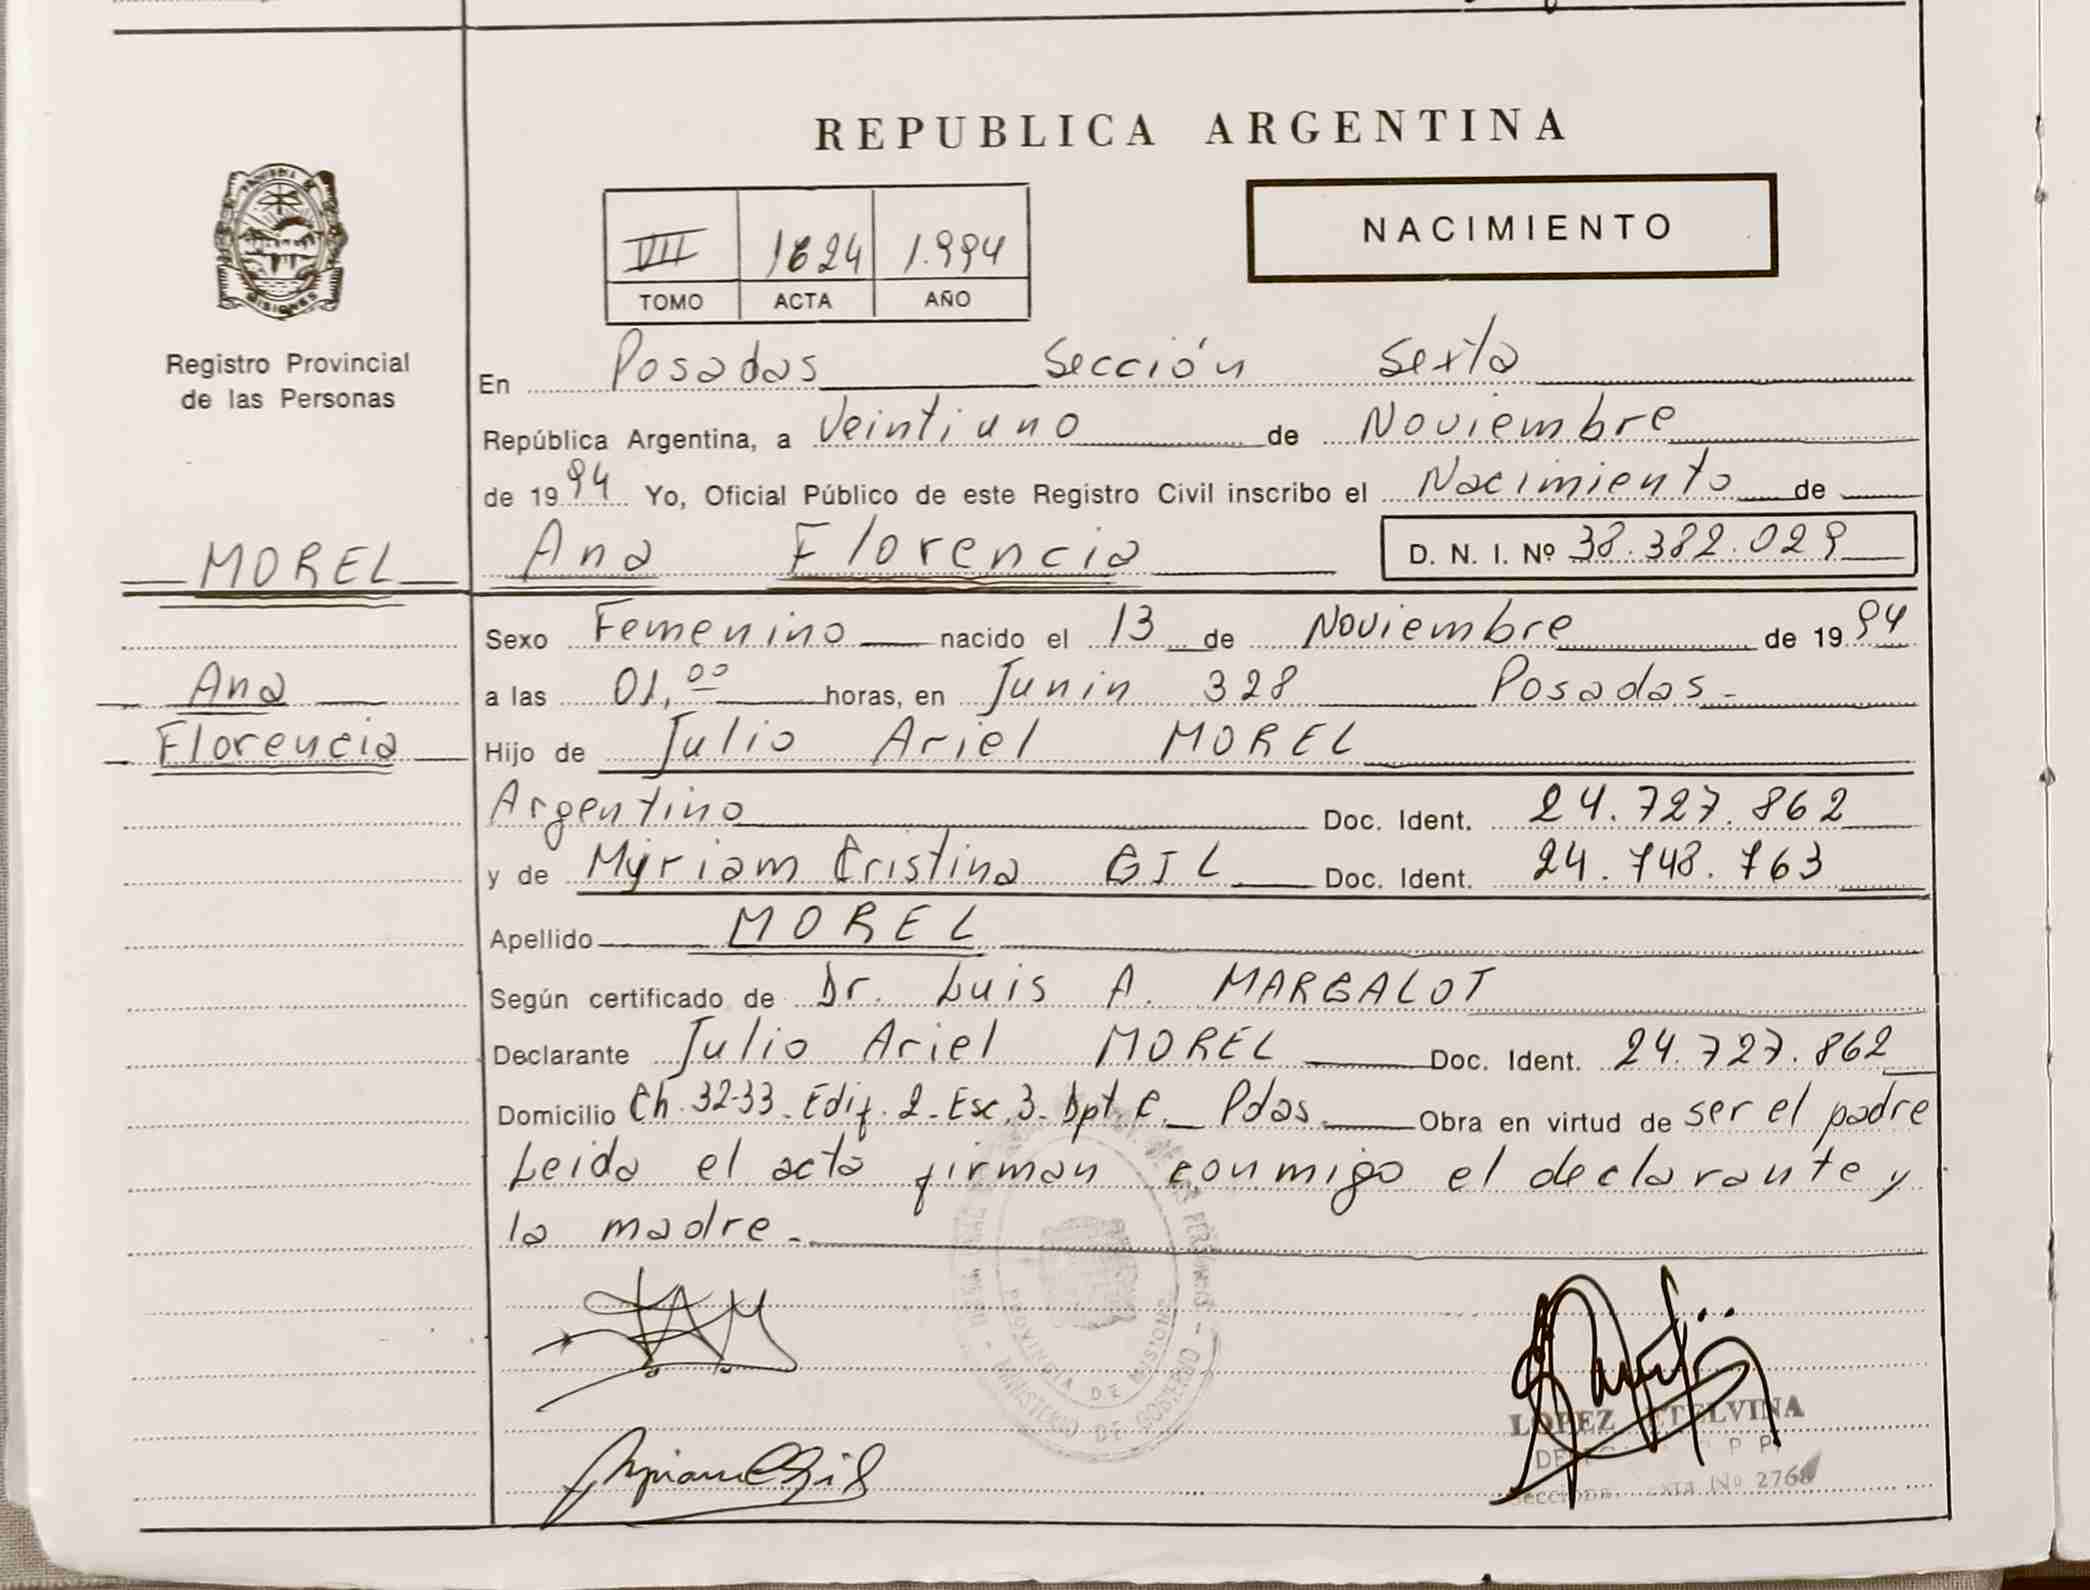 REPUBLICA ARGENTINA
NACIMIENTO
VII 1624 1.994
TOMO ACTA AÑO
MISIONES
Registro Provincial
de las Personas
En Posadas Sección Sexta
República Argentina, a Veintiuno de Noviembre
de 1994 Yo, Oficial Público de este Registro Civil inscribo el Nacimiento de
MOREL Ana Florencia D. N. I. Nº 38.382.029
Sexo Femenino nacido el 13 de Noviembre de 1994
Ana a las 01,00 horas, en Junin 328 Posadas-
Florencia Hijo de Julio Ariel MOREL
Argentino Doc. Ident. 24.727.862
y de Myriam Cristina GIL Doc. Ident. 24.748.763
Apellido MOREL
Según certificado de Dr. Luis A. MARGALOT
Declarante Julio Ariel MOREL Doc. Ident. 24.727.862
Domicilio Ch. 32-33- Edif. 2- Esc. 3- Dpt. C- Pdas. Obra en virtud de ser el padre
Leida el acta firman conmigo el declarante y
la madre.-
PROVINCIA DE MISIONES
MINISTERIO DE GOBIERNO
LOPEZ ETELVINA
Nº 2768